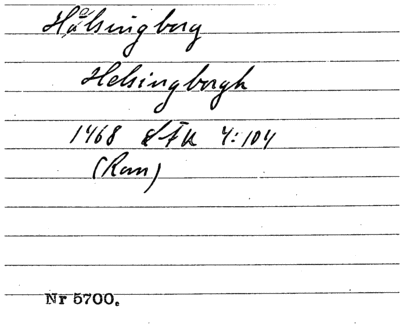 Hälsingborg
Helsingborgh
1468 LFK 4:104
(Ran)
Nr 5700.